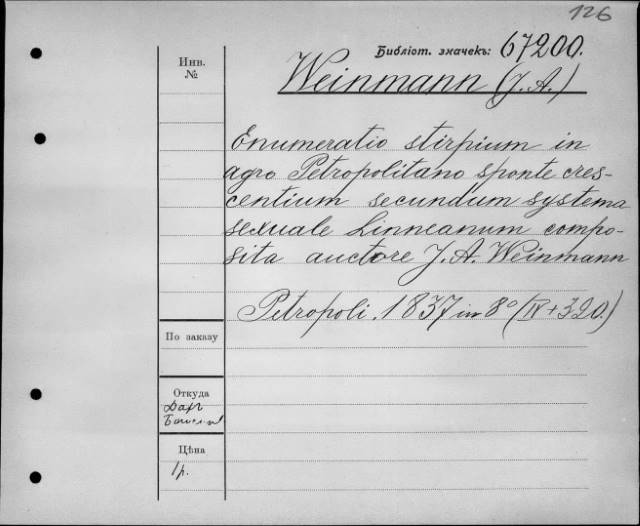 126
Библіот. значекъ: 67200.
Инв.
№
Weinmann (J. A.)
Enumeratio stirpium in
agro Petropolitano sponte cres-
centium secundum systema
sexuale Linneanum compo-
sita auctore J. A. Weinmann
Petropoli. 1837 in 8° (IV + 320.)
По заказу
Откуда
Цѣна
1р.